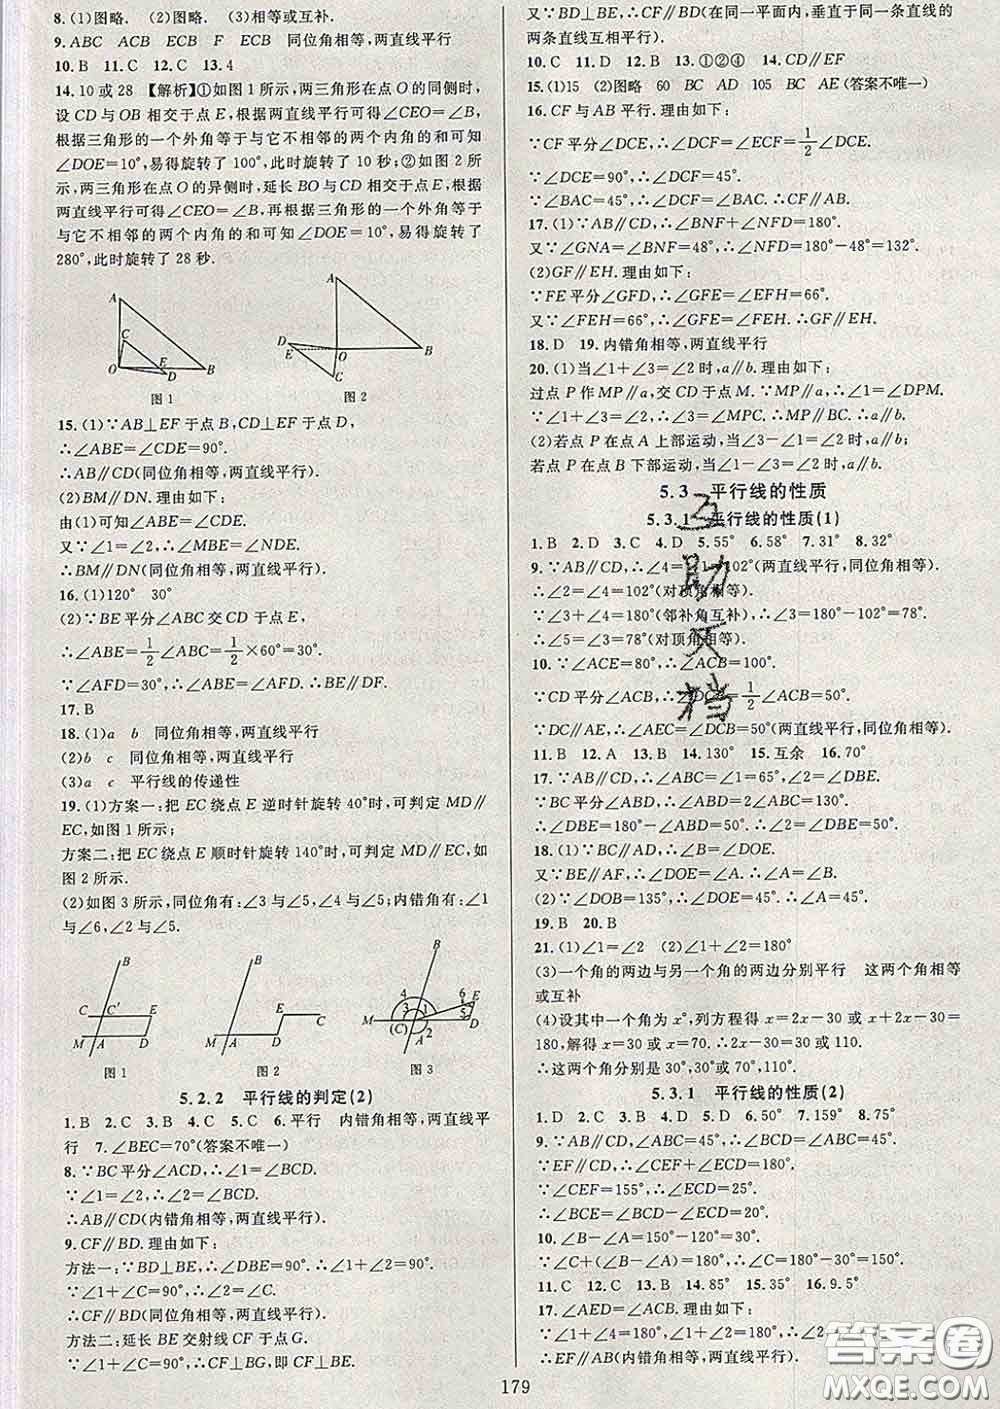 8.(1)图略. (2)图略. (3)相等或互补.
9.ABC ACB ECB F ECB 同位角相等,两直线平行
10.B 11.C 12.C 13.4
14.10或28 【解析】①如图1所示,两三角形在点O的同侧时,
设CD与OB相交于点E,根据两直线平行可得∠CEO=∠B,
根据三角形的一个外角等于与它不相邻的两个内角的和可知
∠DOE=10°,易得旋转了100°,此时旋转了10秒;②如图2所
示,两三角形在点O的异侧时,延长BO与CD相交于点E,根据
两直线平行可得∠CEO=∠B,再根据三角形的一个外角等于
与它不相邻的两个内角的和可知∠DOE=10°,易得旋转了
280°,此时旋转了28秒.
A C O E D B
图1
A D E O B C
图2
15.(1)∵AB⊥EF于点B,CD⊥EF于点D,
∴∠ABE=∠CDE=90°.
∴AB∥CD(同位角相等,两直线平行).
(2)BM∥DN.理由如下:
由(1)可知∠ABE=∠CDE.
又∵∠1=∠2,∴∠MBE=∠NDE.
∴BM∥DN(同位角相等,两直线平行).
16.(1)120° 30°
(2)∵BE平分∠ABC交CD于点E,
∴∠ABE=1/2∠ABC=1/2×60°=30°.
∵∠AFD=30°,∴∠ABE=∠AFD.∴BE∥DF.
17.B
18.(1)a b 同位角相等,两直线平行
(2)b c 内错角相等,两直线平行
(3)a c 平行线的传递性
19.(1)方案一:把EC绕点E逆时针旋转40°时,可判定MD∥
EC,如图1所示;
方案二:把EC绕点E顺时针旋转140°时,可判定MD∥EC,如
图2所示.
(2)如图3所示,同位角有:∠3与∠5,∠4与∠5.内错角有:∠1
与∠6,∠2与∠5.
B C C′ E M A D
图1
B E C M A D
图2
B 4 3 1 6 E 5 M (C) A 2 D
图3
5.2.2 平行线的判定(2)
1.B 2.C 3.B 4.C 5.C 6.平行 内错角相等,两直线平
行 7.∠BEC=70°(答案不唯一)
8.∵BC平分∠ACD,∴∠1=∠BCD.
∵∠1=∠2,∴∠2=∠BCD.
∴AB∥CD(内错角相等,两直线平行).
9.CF∥BD.理由如下:
方法一:∵BD⊥BE,∴∠1+∠2=90°.
∵∠1+∠C=90°,∴∠2=∠C.
∴CF∥BD(同位角相等,两直线平行).
方法二:延长BE交射线CF于点G.
∵∠1+∠C=90°,∴CF⊥BG,即CF⊥BE.
又∵BD⊥BE,∴CF∥BD(在同一平面内,垂直于同一条直线的
两条直线互相平行).
10.C 11.D 12.B 13.①②④ 14.CD∥EF
15.(1)15 (2)图略 60 BC AD 105 BC AE(答案不唯一)
16.CF与AB平行.理由如下:
∵CF平分∠DCE,∴∠DCF=∠FCE=1/2∠DCE.
∵∠DCE=90°,∴∠DCF=45°.
∵∠BAC=45°,∴∠DCF=∠BAC.∴CF∥AB.
17.(1)∵AB∥CD,∴∠BNF+∠NFD=180°.
又∵∠GNA=∠BNF=48°,∴∠NFD=180°-48°=132°.
(2)GF∥EH.理由如下:
∵FE平分∠GFD,∴∠GFE=∠EFH=66°.
又∵∠FEH=66°,∴∠GFE=∠FEH.∴GF∥EH.
18.D 19.内错角相等,两直线平行
20.(1)当∠1+∠3=∠2时,a∥b.理由如下:
过点P作MP∥a,交CD于点M.∵MP∥a,∴∠1=∠DPM.
∵∠1+∠3=∠2,∴∠3=∠MPC.∴MP∥BC.∴a∥b.
(2)若点P在点A上部运动,当∠3-∠1=∠2时,a∥b.
若点P在点B下部运动,当∠1-∠3=∠2时,a∥b.
5.3 平行线的性质
5.3.1 平行线的性质(1)
1.B 2.D 3.C 4.D 5.55° 6.58° 7.31° 8.32°
9.∵AB∥CD,∴∠4=∠1=102°(两直线平行,同位角相等).
∴∠2=∠4=102°(对顶角相等).
∵∠3+∠4=180°(邻补角互补),∴∠3=180°-102°=78°.
∴∠5=∠3=78°(对顶角相等).
10.∵∠ACE=80°,∴∠ACB=100°.
∵CD平分∠ACB,∴∠DCB=1/2∠ACB=50°.
∵DC∥AE,∴∠AEC=∠DCB=50°(两直线平行,同位角相等).
11.B 12.A 13.B 14.130° 15.互余 16.70°
17.∵∠1=∠2,∴∠ABC=∠1=65°,∠2=∠DBE.
∵BC平分∠ABD,∴∠ABD=2∠ABC=130°.
∴∠DBE=180°-∠ABD=50°.∴∠2=∠DBE=50°.
18.(1)∵BC∥AD,∴∠B=∠DOE.
又∵BE∥AF,∴∠DOE=∠A.∴∠A=∠B.
(2)∵∠DOB=135°,∴∠DOE=45°.∴∠A=45°.
19.B 20.B
21.(1)∠1=∠2 (2)∠1+∠2=180°
(3)一个角的两边与另一个角的两边分别平行 这两个角相等
或互补
(4)设其中一个角为x°,列方程得x=2x-30或x+2x-30=
180,解得x=30或x=70.∴2x-30=30或2x-30=110.
∴这两个角分别是30°,30°或70°,110°.
5.3.1 平行线的性质(2)
1.D 2.C 3.D 4.D 5.D 6.50° 7.159° 8.75°
9.∵AB∥CD,∠ABC=45°,∴∠BCD=∠ABC=45°.
∵EF∥CD,∴∠ECD+∠CEF=180°.
∵∠CEF=155°,∴∠ECD=25°.
∴∠BCE=∠BCD-∠ECD=20°.
10.∠B-∠A=150°-120°=30°.
∵∠C+(∠B-∠A)=180°,∴∠C=180°-30°=150°.
11.C 12.C 13.B 14.85° 15.35° 16.9.5°
17.∠AED=∠ACB.理由如下:
∵∠1+∠4=180°,∠1+∠2=180°,∴∠2=∠4.
∴EF∥AB(内错角相等,两直线平行).
179
互助文档
答案圈
MXQE.COM